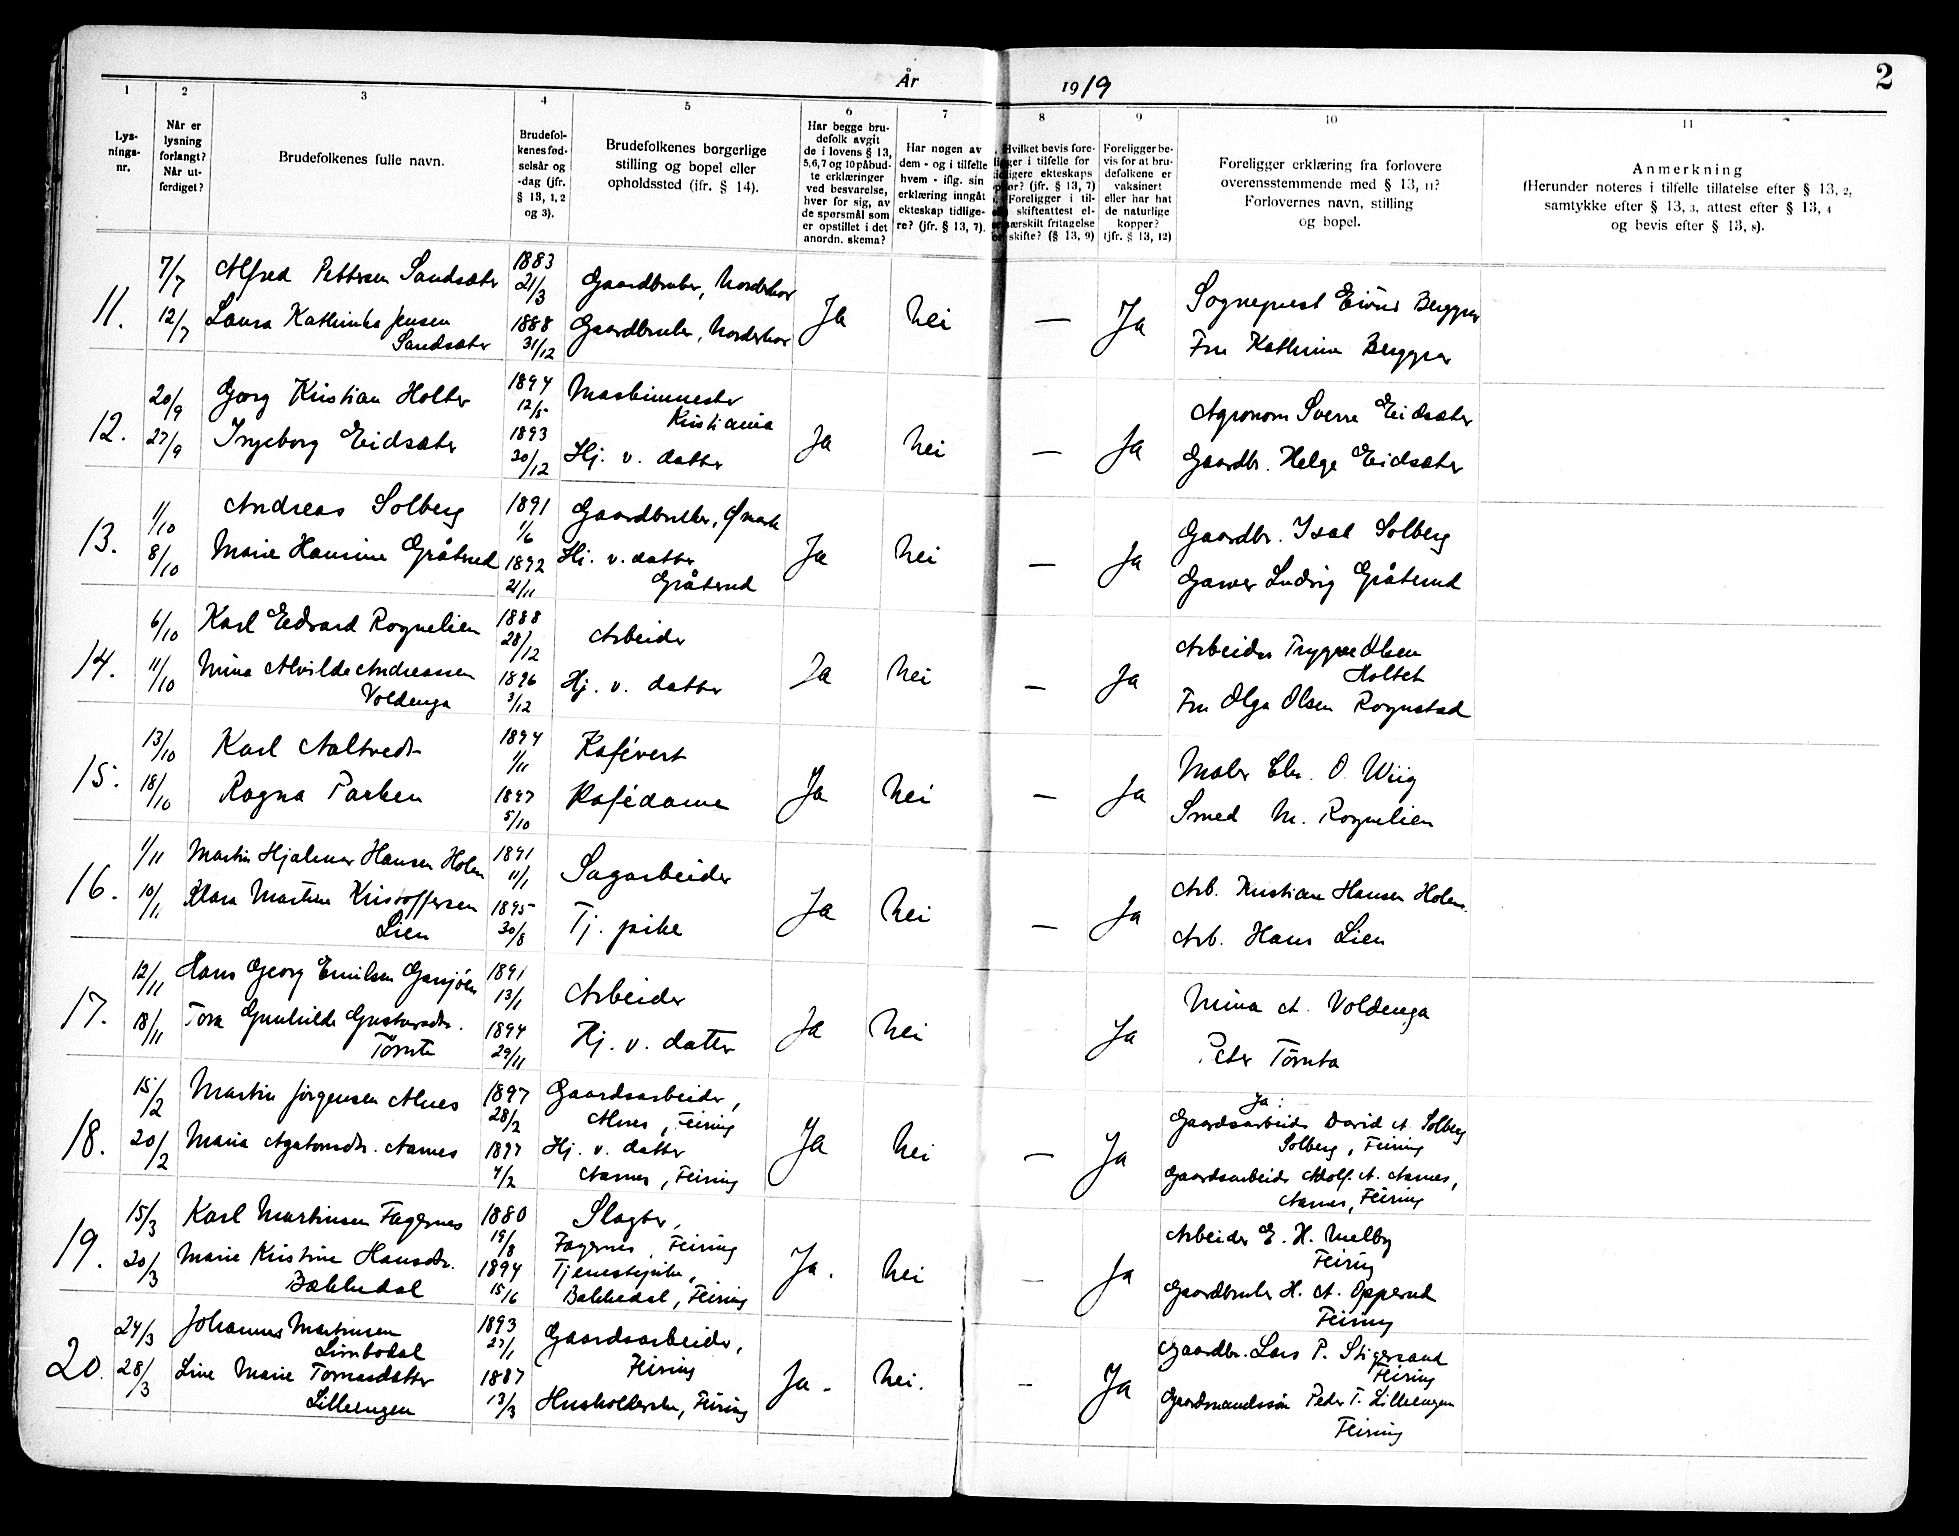 År 1919 2
1 2 3 4 5 6 7 8 9 10 11
Lys-
nings-
nr.
Når er
lysning
forlangt?
Når ut-
ferdiget?
Brudefolkenes fulle navn.
Brudefol-
kenes fød-
selsår og
-dag (jfr.
§ 13, 1, 2
og 3).
Brudefolkenes borgerlige
stilling og bopel eller
opholdssted (ifr. § 14).
Har begge bru-
defolk avgit
de i lovens § 13,
5,6,7 og 10 påbud-
te erklæringer
ved besvarelse,
hver for sig, av
de spørsmål som
er opstillet i det
anordn. skema?
Har nogen av
dem - og i tilfelle
hvem - iflg. sin
erklæring inngåt
ekteskap tidlige-
re? (jfr. § 13, 7).
Hvilket bevis fore-
ligger i tilfelle for
tidligere ekteskaps
ophør? (jfr. § 13, 7)
Foreligger i til-
skifteattest el-
særskilt fritagelse
for skifte? (§ 13, 9)
Foreligger be-
vis for at bru-
defolkene er
vaksinert
eller har hat
de naturlige
kopper?
(jfr. § 13, 12)
Foreligger erklæring fra forlovere
overensstemmende med § 13, 11?
Forlovernes navn, stilling
og bopel.
Anmerkning
(Herunder noteres i tilfelle tillatelse efter § 13, 2,
samtykke efter § 13, 3, attest efter § 13, 4
og bevis efter § 13, 8).
11. 7/7 Alfred Pettersen Sandsæter 1883 21/3 Gaardbruker, Nordehov Ja Nei — Ja Sogneprest Eivind Berggrav
12/7 Laura Kathinka Jensen Sandsæter 1888 31/12 Gaardbruker, Nordehov Fru Kathrine Berggrav
12. 20/9 Georg Kristian Holter 1894 12/5 Maskinmester Kristiania Ja Nei — Ja Agronom Sverre Eidsæter
27/9 Ingeborg Eidsæter 1893 30/12 Hj. v. datter Gaardbr. Helge Eidsæter
13. 1/10 Andreas Solberg 1891 1/6 Gaardbruker, Ømark Ja Nei — Ja Gaardbr. Isak Solberg
8/10 Marie Hansine Gråterud 1892 21/11 Hj. v. datter Gråterud Garver Ludvig Gråterud
14. 6/10 Karl Edvard Rognelien 1888 28/12 Arbeider Ja Nei — Ja Arbeider Trygve Olsen Holtet
11/10 Mina Alvilde Andreassen Voldenga 1896 3/12 Hj. v. datter Fru Olga Olsen Rognstad
15. 13/10 Karl Aaltvedt 1894 1/11 Kafévert Ja Nei — Ja Maler Chr. O. Wiig
18/10 Ragna Parken 1897 5/10 Kafédame Smed M. Rognelien
16. 1/11 Martin Hjalmar Hansen Holm 1891 11/1 Sagarbeider Ja Nei — Ja Arb. Kristian Hansen Holm.
10/11 Klara Martine Kristoffersen Lien 1895 30/8 Tj. pike Arb. Hans Lien
17. 12/11 Hans Georg Emilsen Garsjøen 1891 13/1 Arbeider Ja Nei Ja Mina A. Voldenga
18/11 Tora Gunhilde Gustavsdtr. Tømte 1894 29/11 Hj. v. datter Peter Tømta
18. 15/2 Martin Jörgensen Alnes 1897 28/2 Gaardsarbeider, Alnes, Feiring Ja Nei — Ja Ja: Gaardsarbeider David A. Solberg Solberg, Feiring
20/2 Maria Agatonsdtr. Aarnes 1897 4/2 Hj. v. datter Aarnes, Feiring Gaardsarbeider Adolf. A. Aarnes, Aarnes, Feiring
19. 15/3 Karl Martinsen Fagernes 1880 19/8 Slagter, Fagernes, Feiring Ja. Nei — Ja Arbeider E. H. Melby Feiring
20/3 Marie Kristine Hansdtr. Bækkedal 1894 15/6 Tjenestepike, Bækkedal, Feiring Gaardbruker H. A. Opperud Feiring
20. 24/3 Johannes Martinsen Limbodal 1893 27/1 Gaardsarbeider, Feiring Ja - Nei. — Ja Gaardbr. Lars P. Stigersand Feiring
28/3 Line Marie Tomasdatter Lilleengen 1887 13/3 Husholderske, Feiring Gaardmandssön Peder T. Lilleengen Feiring